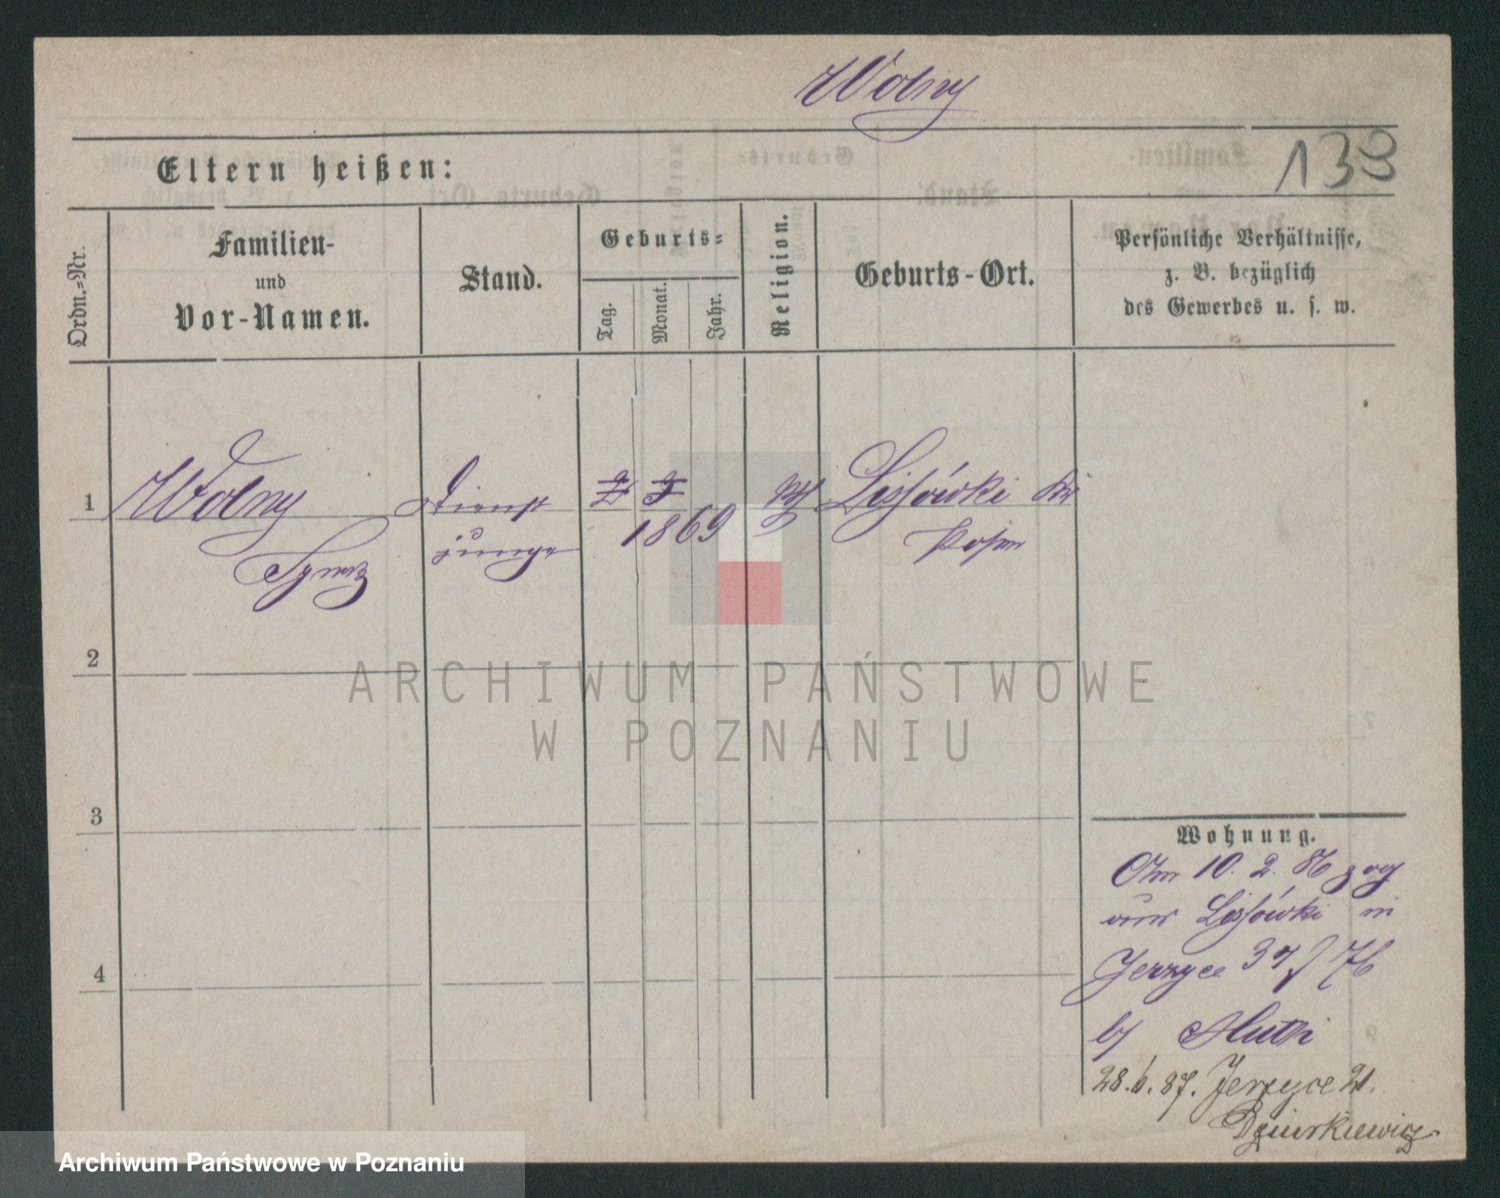 Wolny
139
Eltern heißen:
Ordn.-Nr.
Familien-
und
Vor-Namen.
Stand.
Geburts-
Tag.
Monat.
Jahr.
Religion.
Geburts-Ort.
Persönliche Verhältnisse,
z. B. bezüglich
des Gewerbes u. s. w.
1
Wolny
Ignaz
Dienst
junge
1869
Lissówki Kr
Posen
2
3
4
Wohnung.
Am 10. 2. 86 zog
aus Lissówki in
Jerzyce
28.6.87. Jerzyce 21.
ARCHIWUM PAŃSTWOWE
W POZNANIU
Archiwum Państwowe w Poznaniu